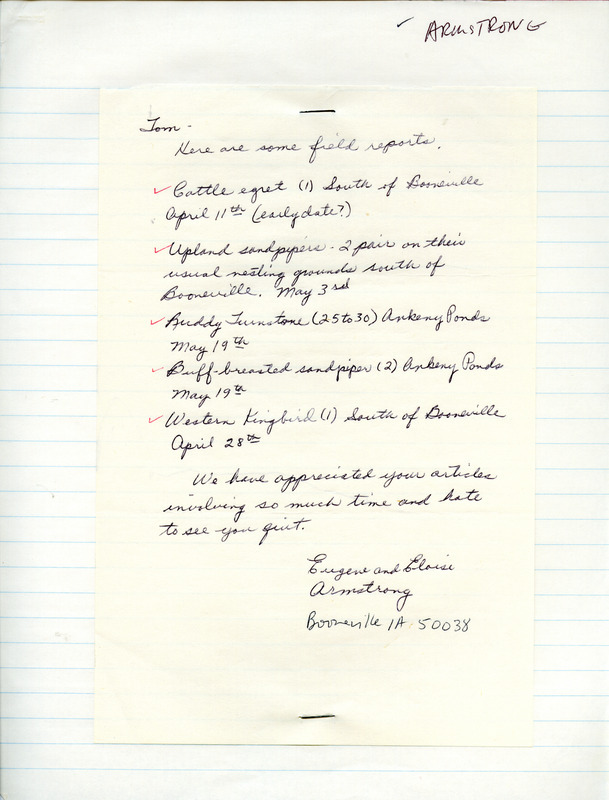 ✓ ARMSTRONG
Tom -
Here are some field reports.
✓ Cattle egret (1) South of Booneville
April 11th (early date?)
✓ Upland sandpipers - 2 pair on their
usual nesting grounds south of
Booneville. May 3rd
✓ Ruddy Turnstone (25 to 30) Ankeny Ponds
May 19th
✓ Buff-breasted sandpiper (2) Ankeny Ponds
May 19th
✓ Western Kingbird (1) South of Booneville
April 28th
We have appreciated your articles
involving so much time and hate
to see you quit.
Eugene and Eloise
Armstrong
Booneville IA 50038